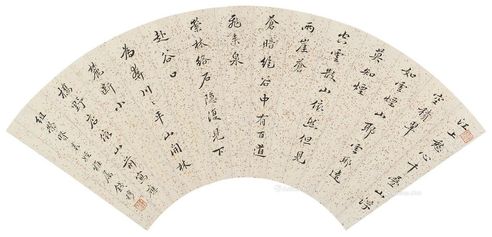 江上愁心千疊山浮
空積翠
如雲煙山耶雲耶遠
莫如煙
空雲散山依然但見
兩崖蒼
蒼暗絕谷中有百道
飛來泉
縈林絡石隱復見下
赴谷口
為奔川平山開林
麓斷小
橋野店依山前
雅屬